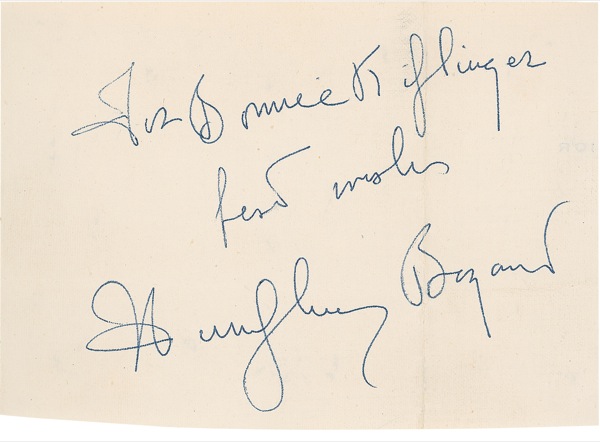 For Bonnie Kiflinger
best wishes
Humphrey Bogart